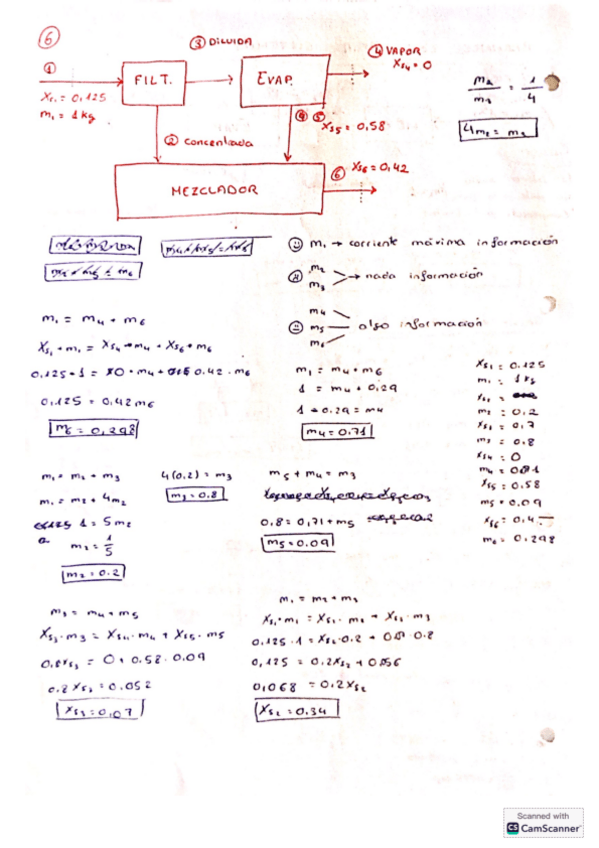 6
③ DILUIDA
④ VAPOR
Xs4 = 0
①
FILT.
EVAP.
Xs1 = 0,125
m1 = 1 kg
⑤
Xs5 = 0,58
② concentrada
⑥ Xs6 = 0,42
MEZCLADOR
m2/m3 = 1/4
4m2 = m3
m1 → corriente máxima información
m2
m3
→ nada información
m4
m5
m6
algo información
m1 = m4 + m6
Xs1 · m1 = Xs4 · m4 + Xs6 · m6
0,125 · 1 = 0 · m4 + 0.42 · m6
0,125 = 0,42 m6
m6 = 0,298
m1 = m4 + m6
1 = m4 + 0,29
1 - 0,29 = m4
m4 = 0.71
Xs1 : 0.125
m1 : 1 kg
Xs2 =
m2 : 0,2
Xs3 : 0,7
m3 : 0.8
Xs4 = 0
m4 =
Xs5 = 0.58
m5 = 0.09
Xs6 : 0.4
m6 : 0.298
m1 = m2 + m3
m1 = m2 + 4m2
1 = 5m2
m2 = 1/5
m2 = 0.2
4(0.2) = m3
m3 = 0.8
m5 + m4 = m3
0.8 = 0,71 + m5
m5 = 0.09
m3 = m4 + m5
Xs3 · m3 = Xs4 · m4 + Xs5 · m5
0.8Xs3 = 0 + 0.58 · 0.09
0.8 Xs3 = 0.052
Xs3 = 0,07
m1 = m2 + m3
Xs1 · m1 = Xs2 · m2 + Xs3 · m3
0.125 · 1 = Xs2 · 0.2 + · 0.8
0,125 = 0.2Xs2 + 0.056
0,068 = 0.2Xs2
Xs2 = 0.34
Scanned with
CS CamScanner